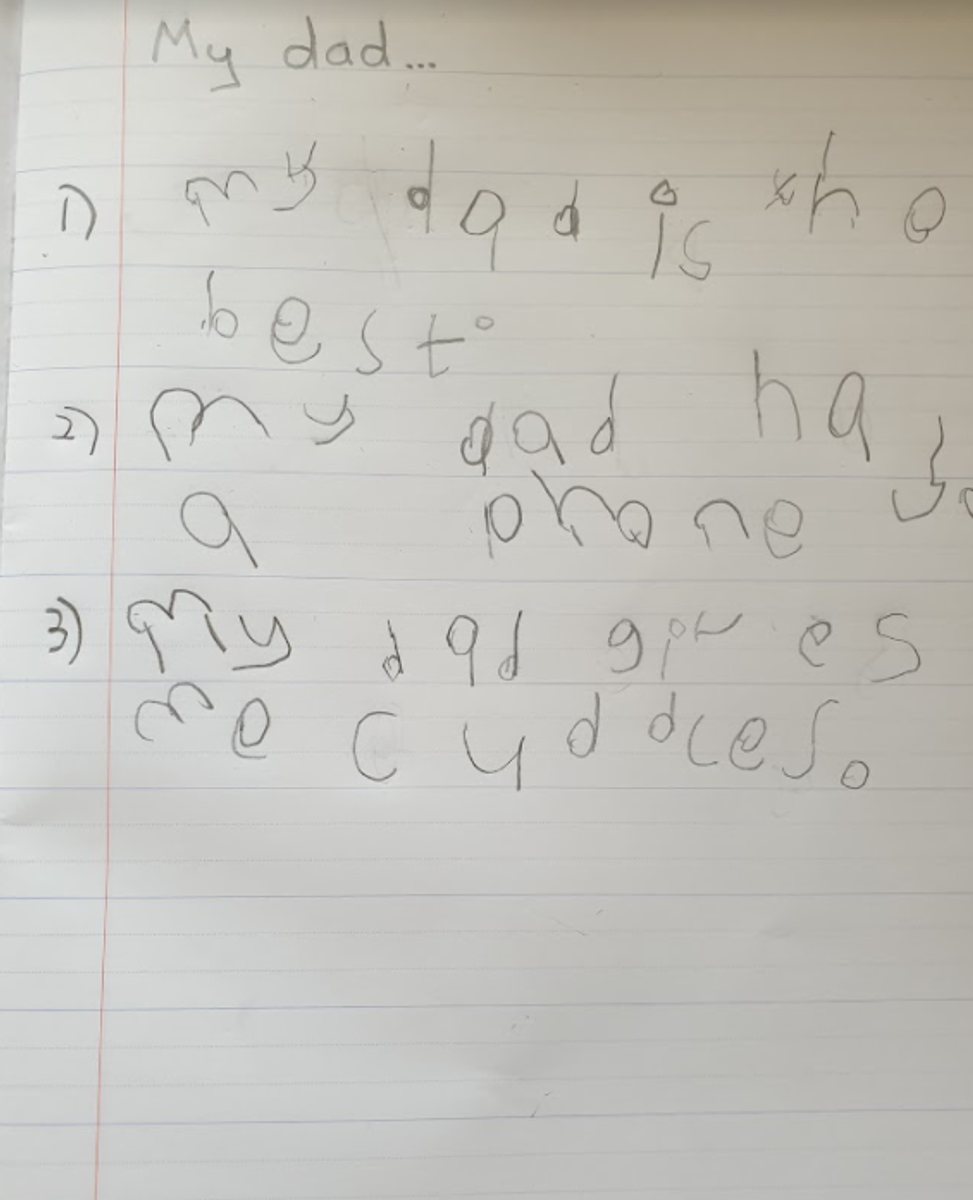 My dad...
1) my dad is the
best.
2) my dad has
a phone.
3) My dad gives
me cuddces.